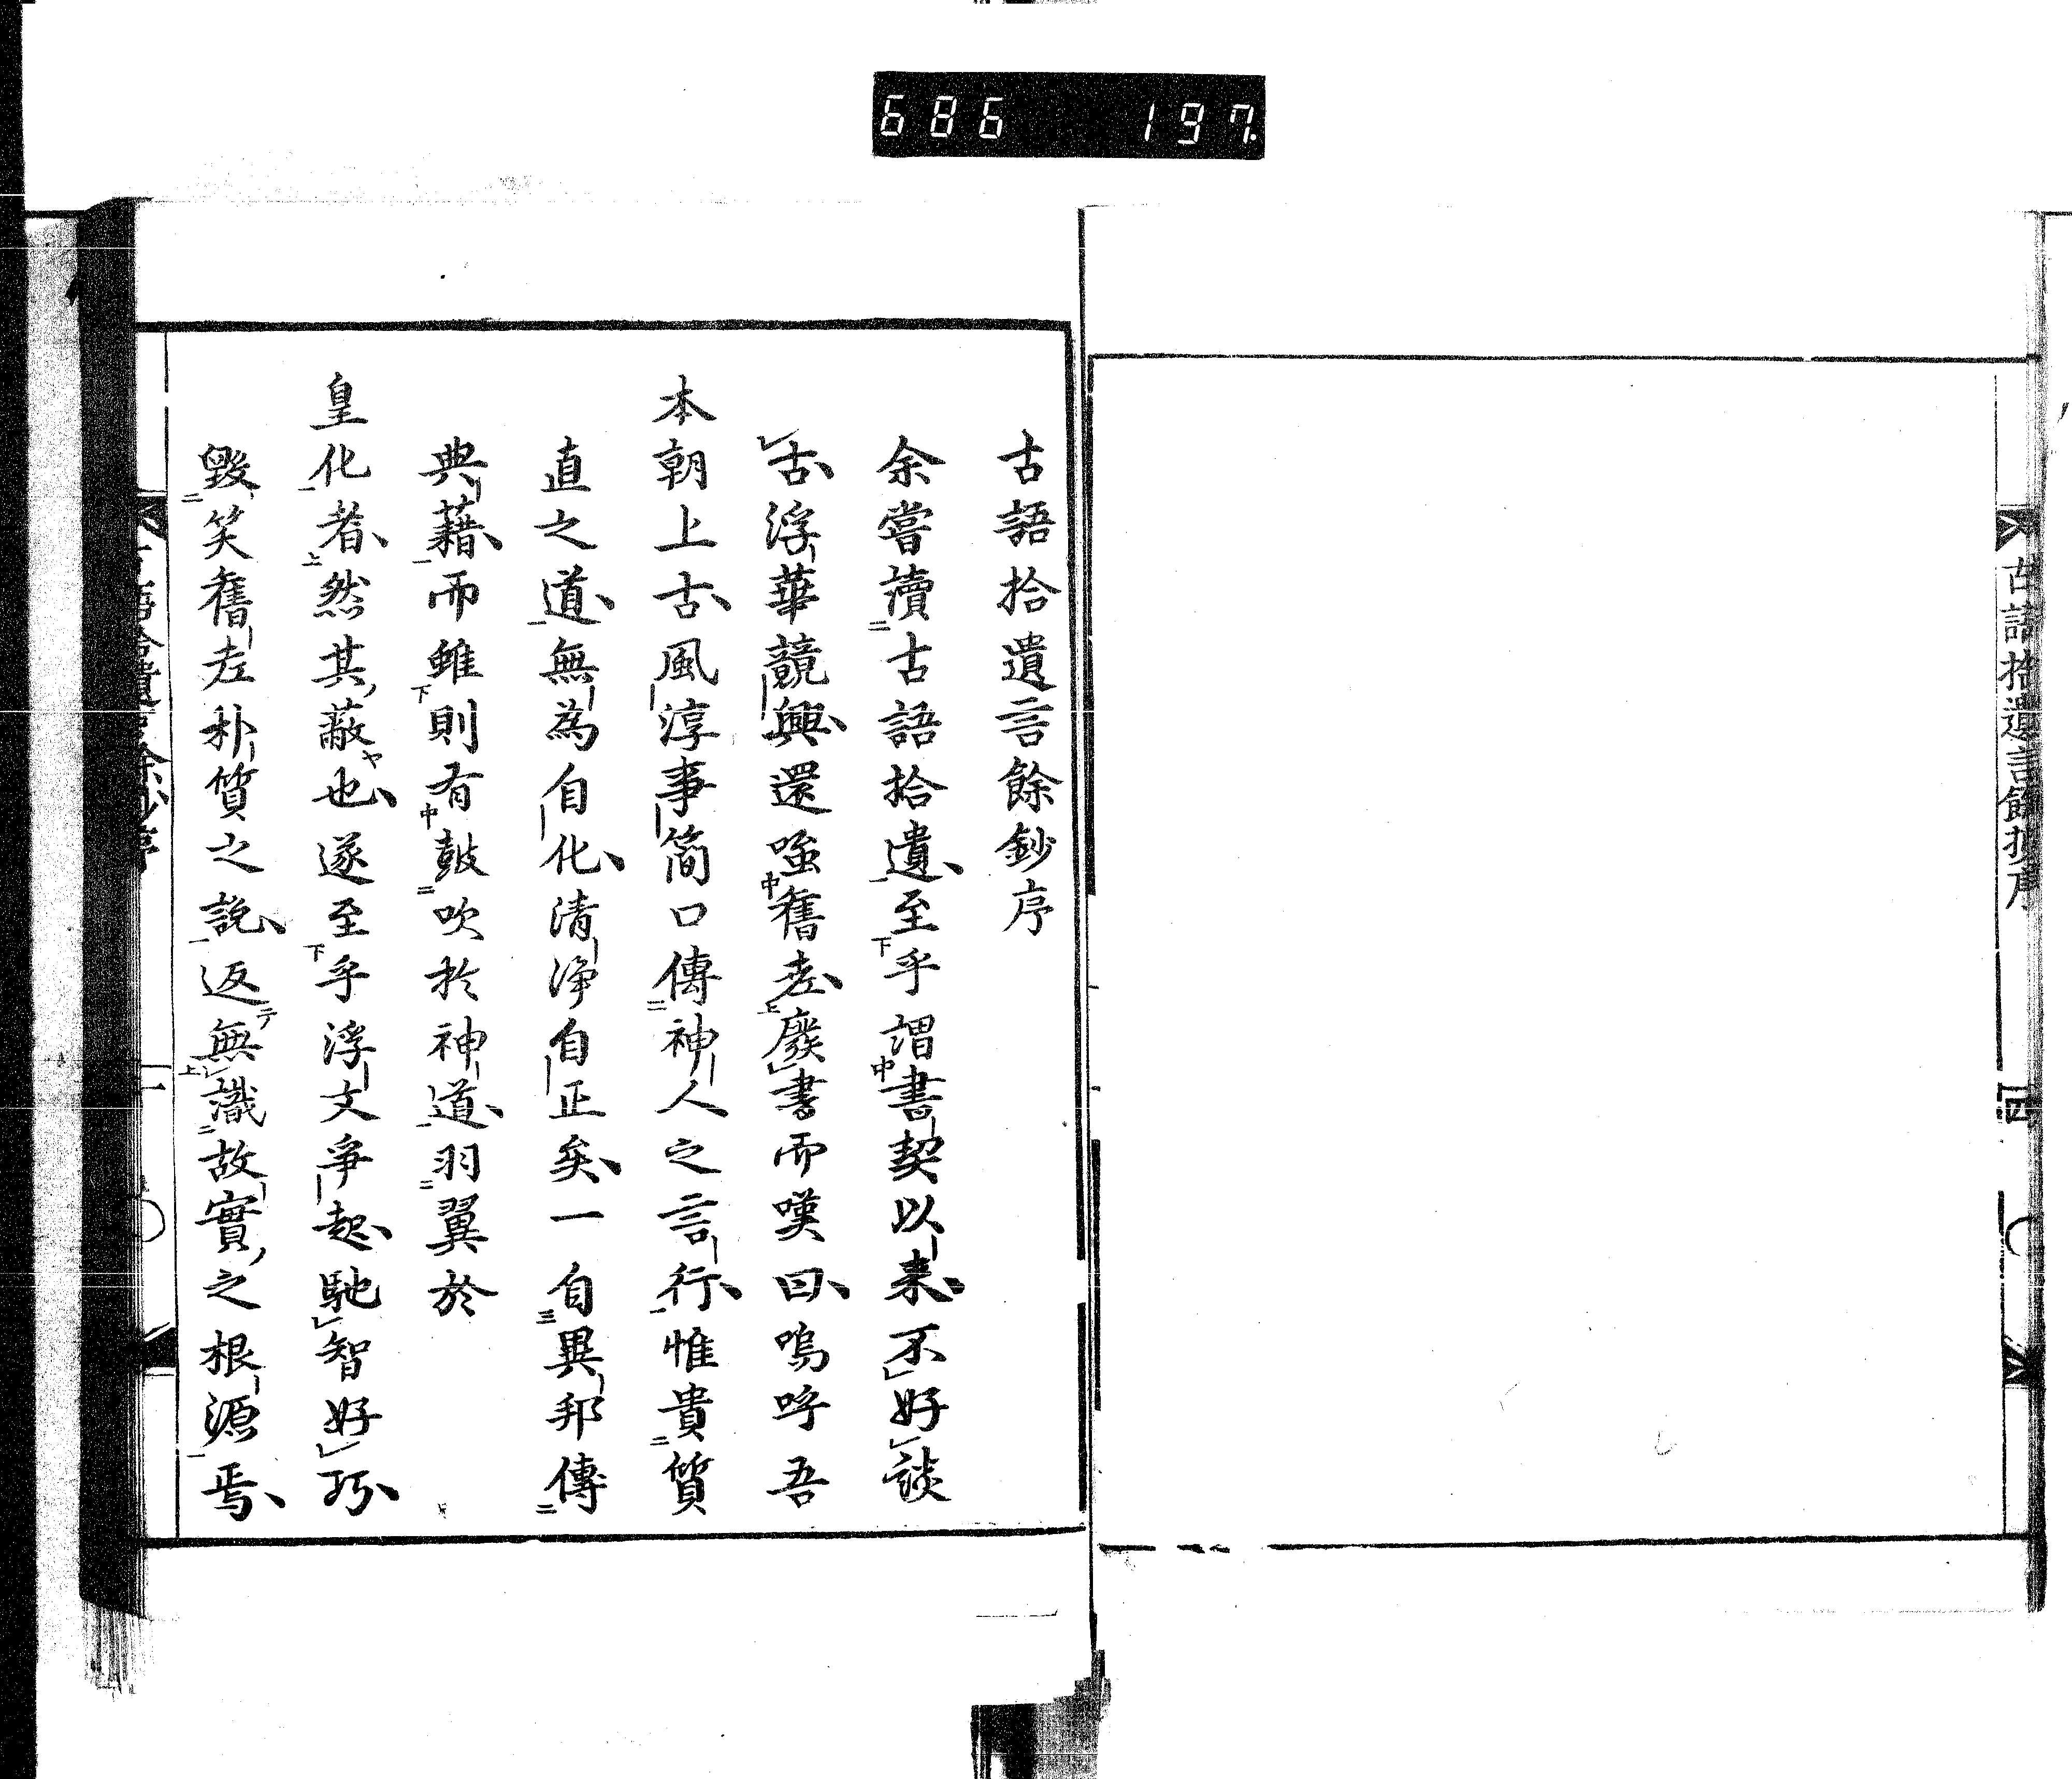 686 197.
古語拾遺言餘抄序
四
古語拾遺言餘鈔序
余嘗讀古語拾遺至乎謂書契以来不好談
古浮華競興還嗤舊老廢書而嘆曰嗚呼吾
本朝上古風淳事简口傳神人之言行惟貴質
直之道無為自化清淨自正矣一自異邦傳
典藉而雖則有鼓吹於神道羽翼於
皇化者然其蔽也遂至乎浮文爭起馳智好巧
毀笑舊老朴質之說返無識故實之根源焉